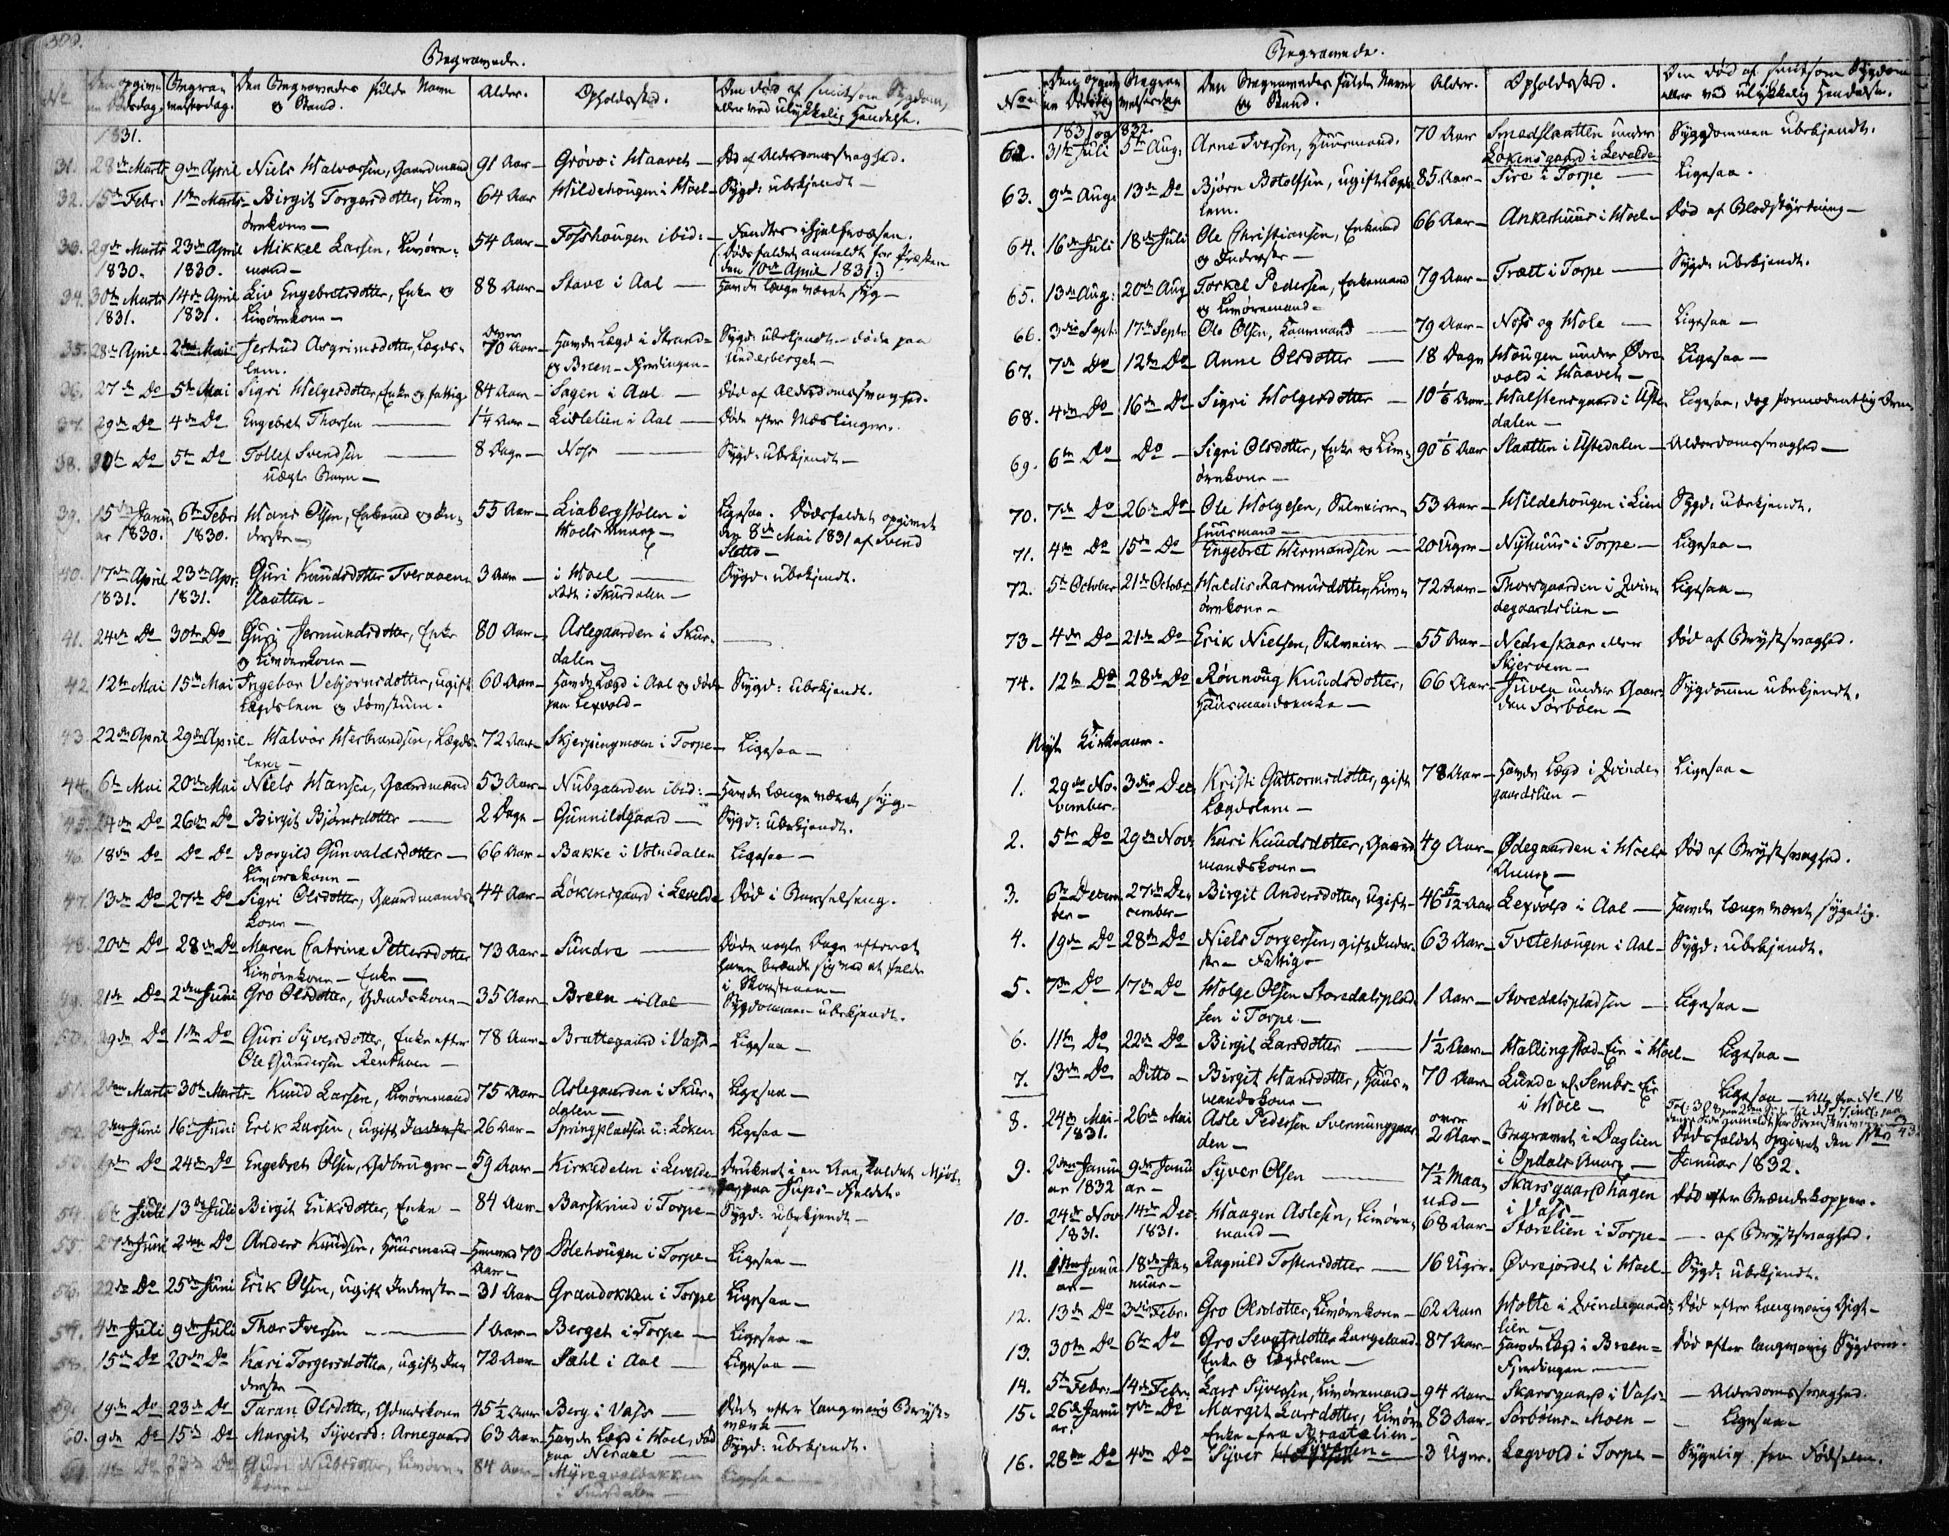 300.
Begravede.
No
Den opgivne Dødsdag.
Begravelsesdag.
Den Begravedes fulde Navn og Stand.
Alder.
Opholdssted.
Om død af smitsom Sygdom, eller ved ulykkelig Hendelse.
1831.
31. 28de Marts 9de April Niels Halvorsen, Gaardmand 91 Aar Grøvo i Haavet Død af Alderdomssvaghed.
32. 15de Febr. 1ste Marts Birgit Torgersdotter, Limørnkone 64 Aar Hildehougen i Hoel Sygd: ubekjendt
33. 29de Marts 1830. 23de April 1830. Mikkel Larsen, Limørnmand 54 Aar Fosshougen ibid: Fandtes ihjelfrosen. (Dødsfaldet anmeldt for Præsten den 10de April 1831.)
34. 30te Marts 1831. 14de April 1831. Liv Engebretsdotter, Enke og Limørnkone 88 Aar Stave i Aal Havde længe været syg
35. 28de April 2den Mai Jertrud Asgrimsdotter, Lægdslem. over 70 Aar Havde Lægd i Strand- og Breen-Fjerdingen Sygd: ubekjendt døde paa Underberget
36. 27de Do 5te Mai Sigri Helgesdotter, Enke og fattig 84 Aar Sagen i Aal Død af Alderdomssvaghed.
37. 29de Do 4de Do Engebret Thorsen 1¼ Aar Lislelien i Aal Døde efter Mæslinger.
38. 30te Do 5te Do Tollef Svendsen uægte Barn 8 Dage Noss Sygd: ubekjendt
39. 15de Januar 1830. 6te Febr. 1830. Hans Olsen, Enkemd og Inderste 55 Aar Liabergstølen i Hoels Annex Ligesaa. Dødsfaldet opgivet den 8de Mai 1831 af Svend Slotto
40. 17de April 1831. 23de Apr. 1831. Guri Knudsdotter Tveraaenslaatten 3 Aar i Hoel født i Skurdalen Sygd: ubekjendt.
41. 24de Do 30te Do Guri Jermundsdotter, Enke og Limørnkone 80 Aar Aslegaarden i Skurdalen
42. 12te Mai 15de Mai Ingebor Vebjørnsdotter, ugift Lægdslem og døvstum. 60 Aar Havde Lægd i Aal og døde paa Lexvold Sygd: ubekjendt.
43. 22de April 29de April Halvor Herbrandsen, Lægdslem 72 Aar Skjerpingmoen i Torpe Ligesaa
44. 6te Mai 20de Mai Niels Hansen, Gaardmand 53 Aar Nubgaarden ibid: Havde længe været syg.
45. 24de Do 26de Do Birgit Bjørnsdotter 2 Dage Gunnildgaard Sygd: ubekjendt.
46. 18de Do Do Do Borgild Gunvaldsdotter Limørnkone 66 Aar Bakke i Votnedalen Ligesaa
47. 13de Do 27de Do Sigri Olsdotter, Gaardmandskone 44 Aar Løkensgaard i Leveld Død i Barselseng.
48. 20de Do 28de Do Maren Catrine Pettersdotter Limørnkone Enke 73 Aar Sundre Døde nogle Dage efterat have brændt sig ved at falde i Skorstenen
49. 21de Do 2den Juni Gro Olsdotter, Gdmdskone 35 Aar Breen i Aal Sygdommen ubekjendt.
50. 29de Do 1ste Do Guri Syversdotter, Enke efter Ole Gundersen 78 Aar Brattegaard i Vats Ligesaa
51. 2den Marts 30te Marts Knud Larsen, Limørnmand 75 Aar Aslegaarden i Skurdalen Ligesaa
52. 2den Juni 16de Juni Erik Larsen, ugift Inderste 26 Aar Springpladsen u: Løken Ligesaa
53. 19de Do 24de Do Engebret Olsen, Gdbruger 59 Aar Kirkedelen i Leveld Druknet i en Aae, kaldet
54. 6te Juli 13de Juli Birgit Eriksdotter, Enke 84 Aar Barskrind i Torpe Sygd: ubekjendt
55. 27de Juni 2den Do Anders Knudsen, Huusmand henved 70 Aar Solehougen i Torpe Ligesaa
56. 22de Do 25de Juni Erik Olsen, ugift Inderste 31 Aar Grandokken i Torpe Ligesaa
57. 4de Juli 9de Juli Thor Iversen 1 Aar Berget i Torpe Ligesaa
58. 15de Do 20de Do Kari Torgersdotter, ugift Inderste 72 Aar Sahl i Aal Ligesaa
59. 19de Do 23de Do Taran Olsdotter, Gdmdskone 45½ Aar Berg i Vats Døde efter langvarig Brystværk
60. 9de Do 15de Do Margit Syversd: Arnegaard 63 Aar Havde Lægd i Hoel, død paa Neraal Sygd: ubekjendt.
61 84 Aar Myregvolbakken i Skurdalen Ligesaa
Begravede.
No
Den opgivne Dødsdag
Begravelsesdag
Den Begravedes fulde Navn og Stand.
Alder.
Opholdssted.
Om død af smitsom Sygdom eller ved ulykkelig Hendelse.
1831 og 1832.
62. 31te Juli 5te Aug. Arne Iversen, Huusmand. 70 Aar Smedslaatten under Løkensgaard i Levelde Sygdommen ubekjendt.
63. 9de Aug. 13de Do Bjørn Botolfsen, ugift Lægdslem. 85 Aar Sire i Torpe Ligesaa.
64. 16de Juli 18de Juli Ole Christiansen, Enkemd og Inderste 66 Aar Ankerhuus i Hoel Død af Blodstyrtning
65. 13de Aug. 20de Aug Torkel Pedersen, Enkemand og Limørnmand 79 Aar Trætt i Torpe Sygd: ubekjendt.
66. 3die Sept. 17de Septr. Ole Olsen, Laurmand 79 Aar Noss og Hole Ligesaa
67. 7de Do 12te Do Anne Olsdotter 18 Dage Hougen under Øvrevold i Haavet Ligesaa
68. 4de Do 16de Do Sigri Holgersdotter 10 1/6 Aar Halstensgaard i Ustedalen Ligesaa, dog formodentlig Orm
69. 6te Do Do Sigri Olsdotter, Enke og Limørnkone 90 1/6 Aar Slaatten i Ustedalen Alderdomssvaghed
70. 7de Do 26de Do Ole Holgesen, Selveier Huusmand 53 Aar Hildehougen i Lien Sygd: ubekjendt.
71. 4de Do 15de Do Engebret Hermandsen 20 Uger Nyhuus i Torpe Ligesaa
72. 5te October 21de Octobr Haldis Rasmusdotter, Limørnkone 72 Aar Thorsgaarden i Qvindegaardslien Ligesaa
73 4de Do 21de Do Erik Nielsen, Selveier 55 Aar Nedreskaar eller Skjervem Død af Brystsvaghed.
74. 12te Do 28de Do Rønnoug Knudsdotter, Huusmandsenke 66 Aar Juven under Gaarden Sørbøen Sygdommen ubekjendt.
Nyt Kirkeaar.
1. 29de November 3die Dec Kristi Guttormsdotter, gift Lægdslem 78 Aar Havde Lægd i Qvindegaardslien Ligesaa
2. 5te Do 29de Nov. Kari Knudsdotter, Gaardmandskone 49 Aar Ødegaarden i Hoels Annex Død af Brystsvaghed.
3. 6te December 27de December Birgit Andersdotter, ugift 46 5/12 Aar Lexvold i Aal Havde længe været sygelig.
4. 19de Do 28de Do Niels Torgersen, gift Inderste Fattig 63 Aar Tvetehougen i Aal Sygd: ubekjendt.
5. 7de Do 17de Do Holge Olsen Storedalspladsen i Torpe 1 Aar Storedalspladsen Ligesaa
6. 11te Do 22de Do Birgit Larsdotter 1½ Aar Hallingstad-Eie i Hoel Ligesaa
7. 13de Do Ditto Birgit Hansdotter, Huusmandskone 70 Aar Lunde el. Sembs-Eie i Hoel Ligesaa
8. 24de Mai 1831. 26de Mai Asle Pedersen Svenunggaarden over 2 Aar Begravet i Daglien i Opdals Annex Dødsfaldet opgivet den 1ste Januar 1832.
9. 2den Januar 1832 9de Januar Syver Olsen 7½ Maaned Skarsgaardhagen i Vats Død efter Børnekopper.
10. 24de Nov. 1831. 14de Dec. 1831. Haagen Aslesen, Limørnmand 68 Aar Storelien i Torpe af Brystsvaghed.
11. 11te Januar 18de Januar Ragnild Tostensdotter 16 Uger Øvrejordet i Hoel Sygd: ubekjendt.
12. 13de Do 3die Febr. Gro Olsdotter, Limørnkone 62 Aar Holte i Qvindegaardslien Død efter langvarig Gigt
13. 30te Do 6te Do Gro Sevatsdotter Langeland Enke og Lægdslem 87 Aar Havde Lægd i Breen-Fjerdingen Død efter langvarig Sygdom.
14. 5te Febr. 14de Febr. Lars Syversen, Limørnmand 94 Aar Skarsgaard i Vats Alderdomssvaghed.
15. 26de Januar 7de Do Margit Larsdotter, Limørn Enke fra Braatalien 83 Aar Sørbøens-Moen Ligesaa
16. 28de Do 4de Do Syver Syversen 3 Uger Lagvold i Torpe Sygelig fra Fødselen.